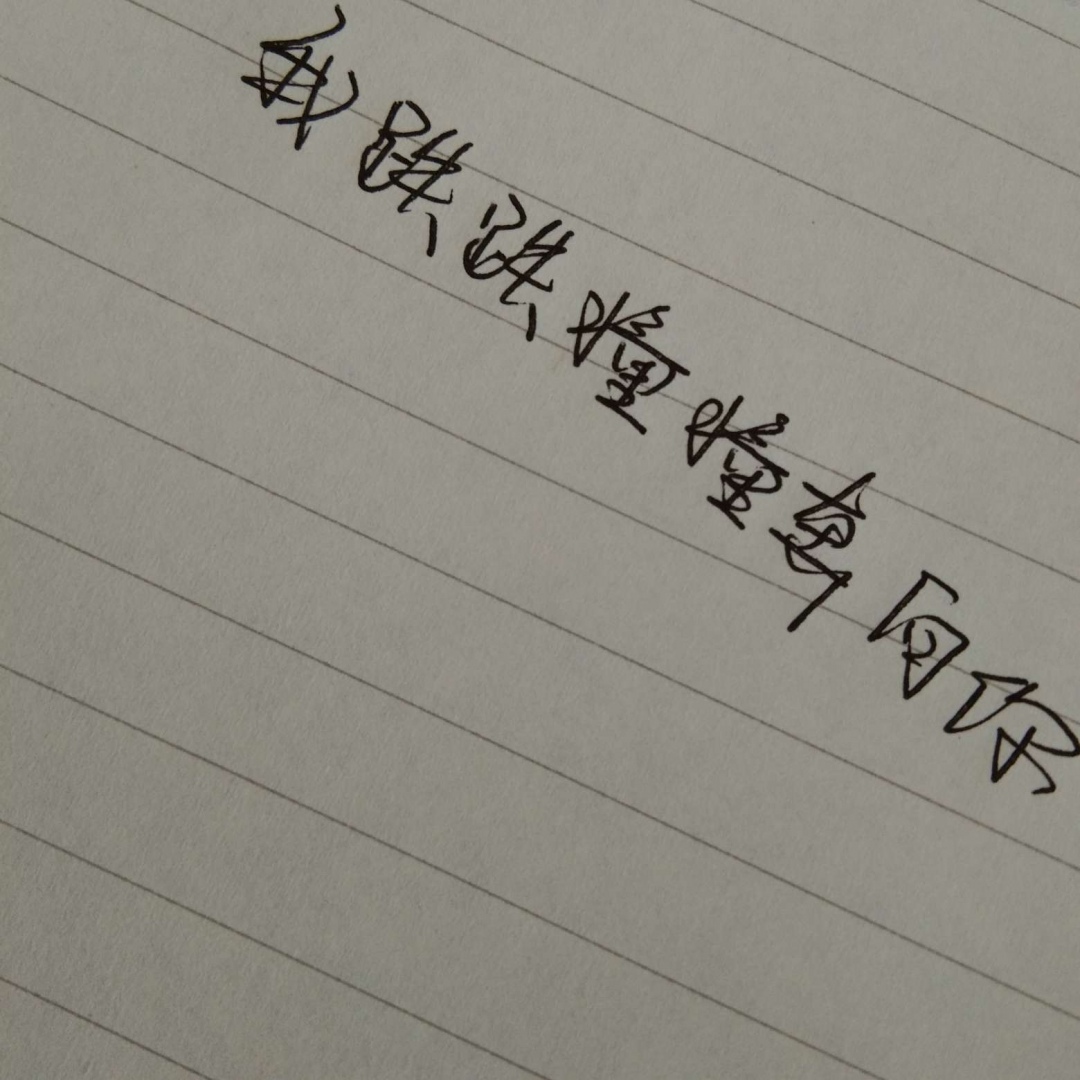 我跌跌撞撞奔向你